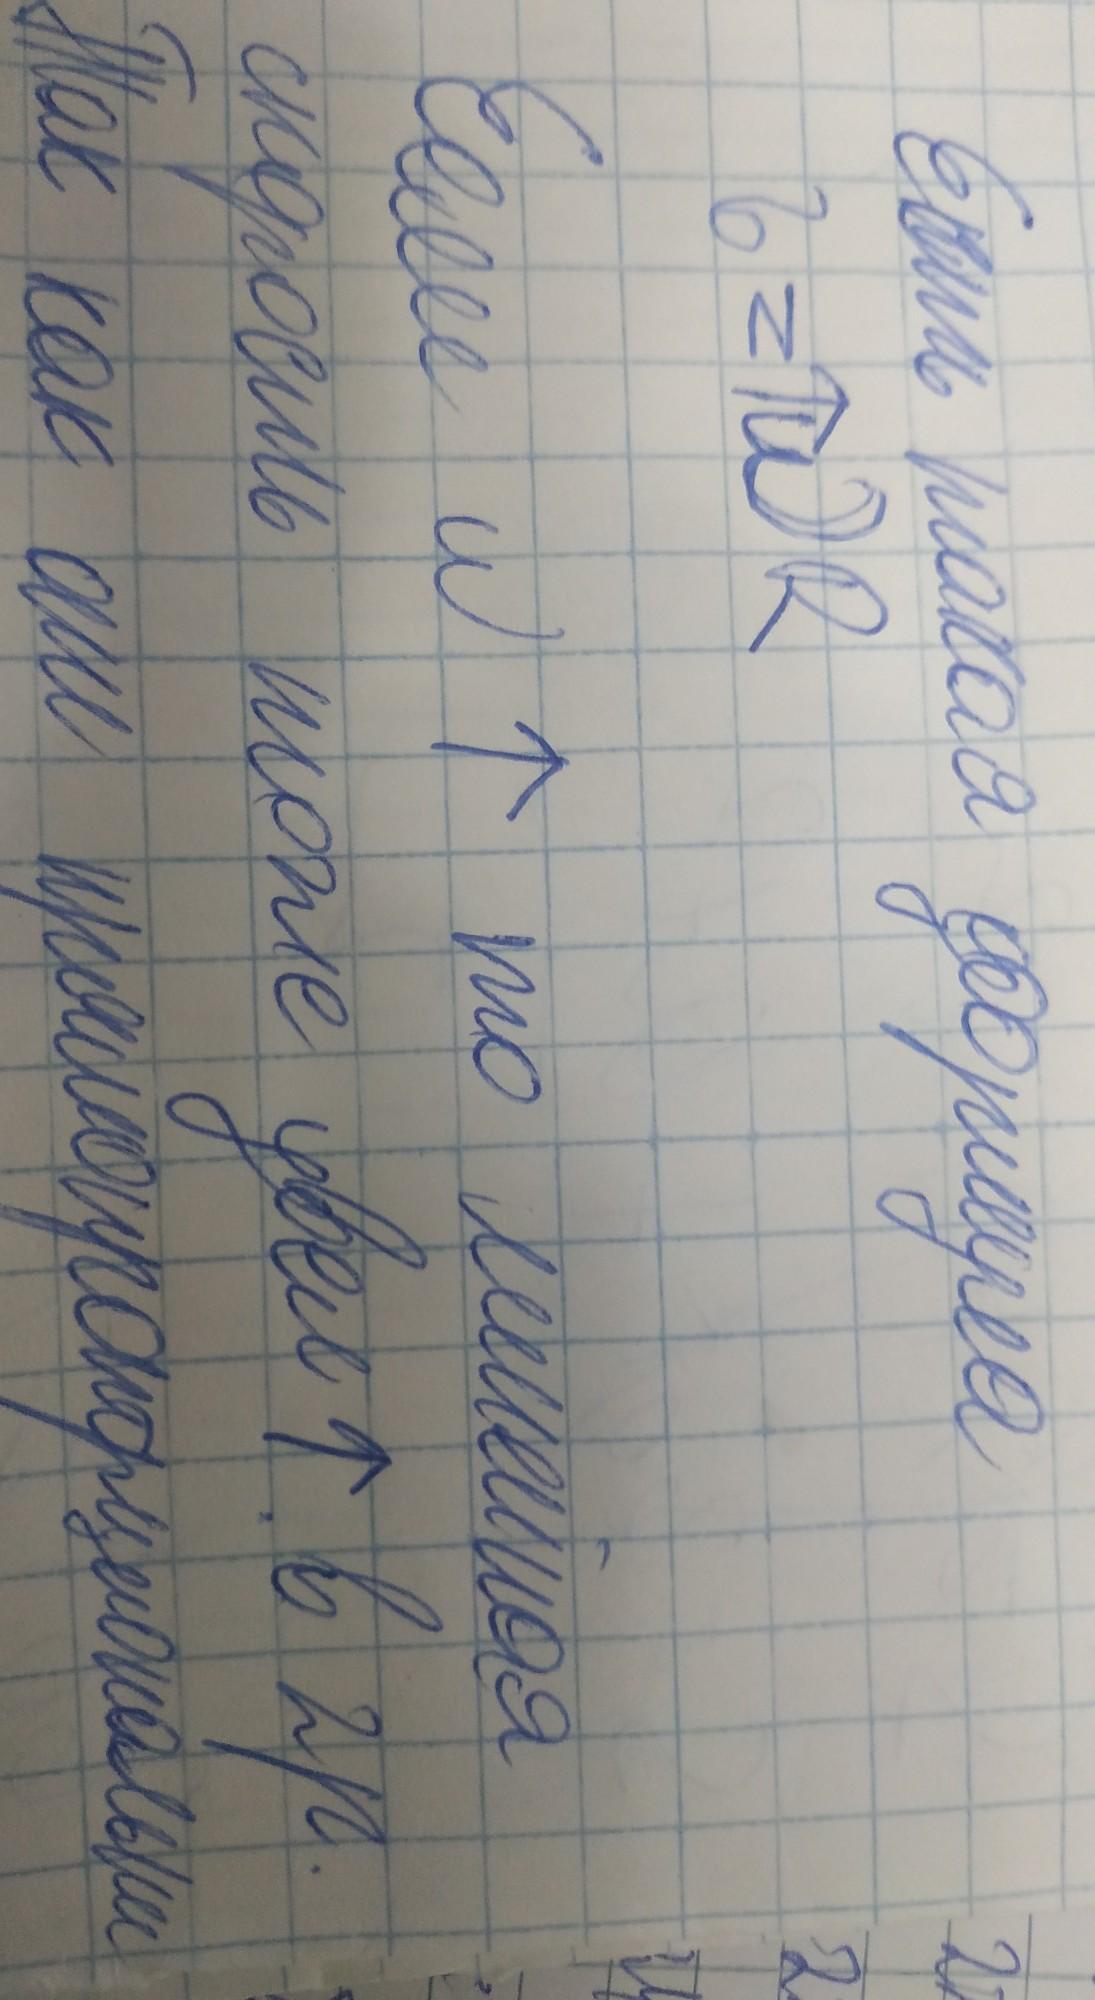 Есть такая формула
υ = ↑ωR
Если ω ↑ то линейная
скорость тоже увел ↑ в 2 р.
Так как они прямопропорциональны